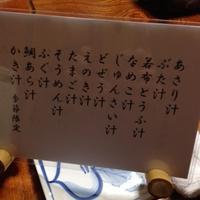 あさり汁
ぶた汁
若布とうふ汁
なめこ汁
じゅんさい汁
どぜう汁
えのき汁
たまご汁
そうめん汁
ふぐ汁
鯛あら汁
かき汁 季節限定